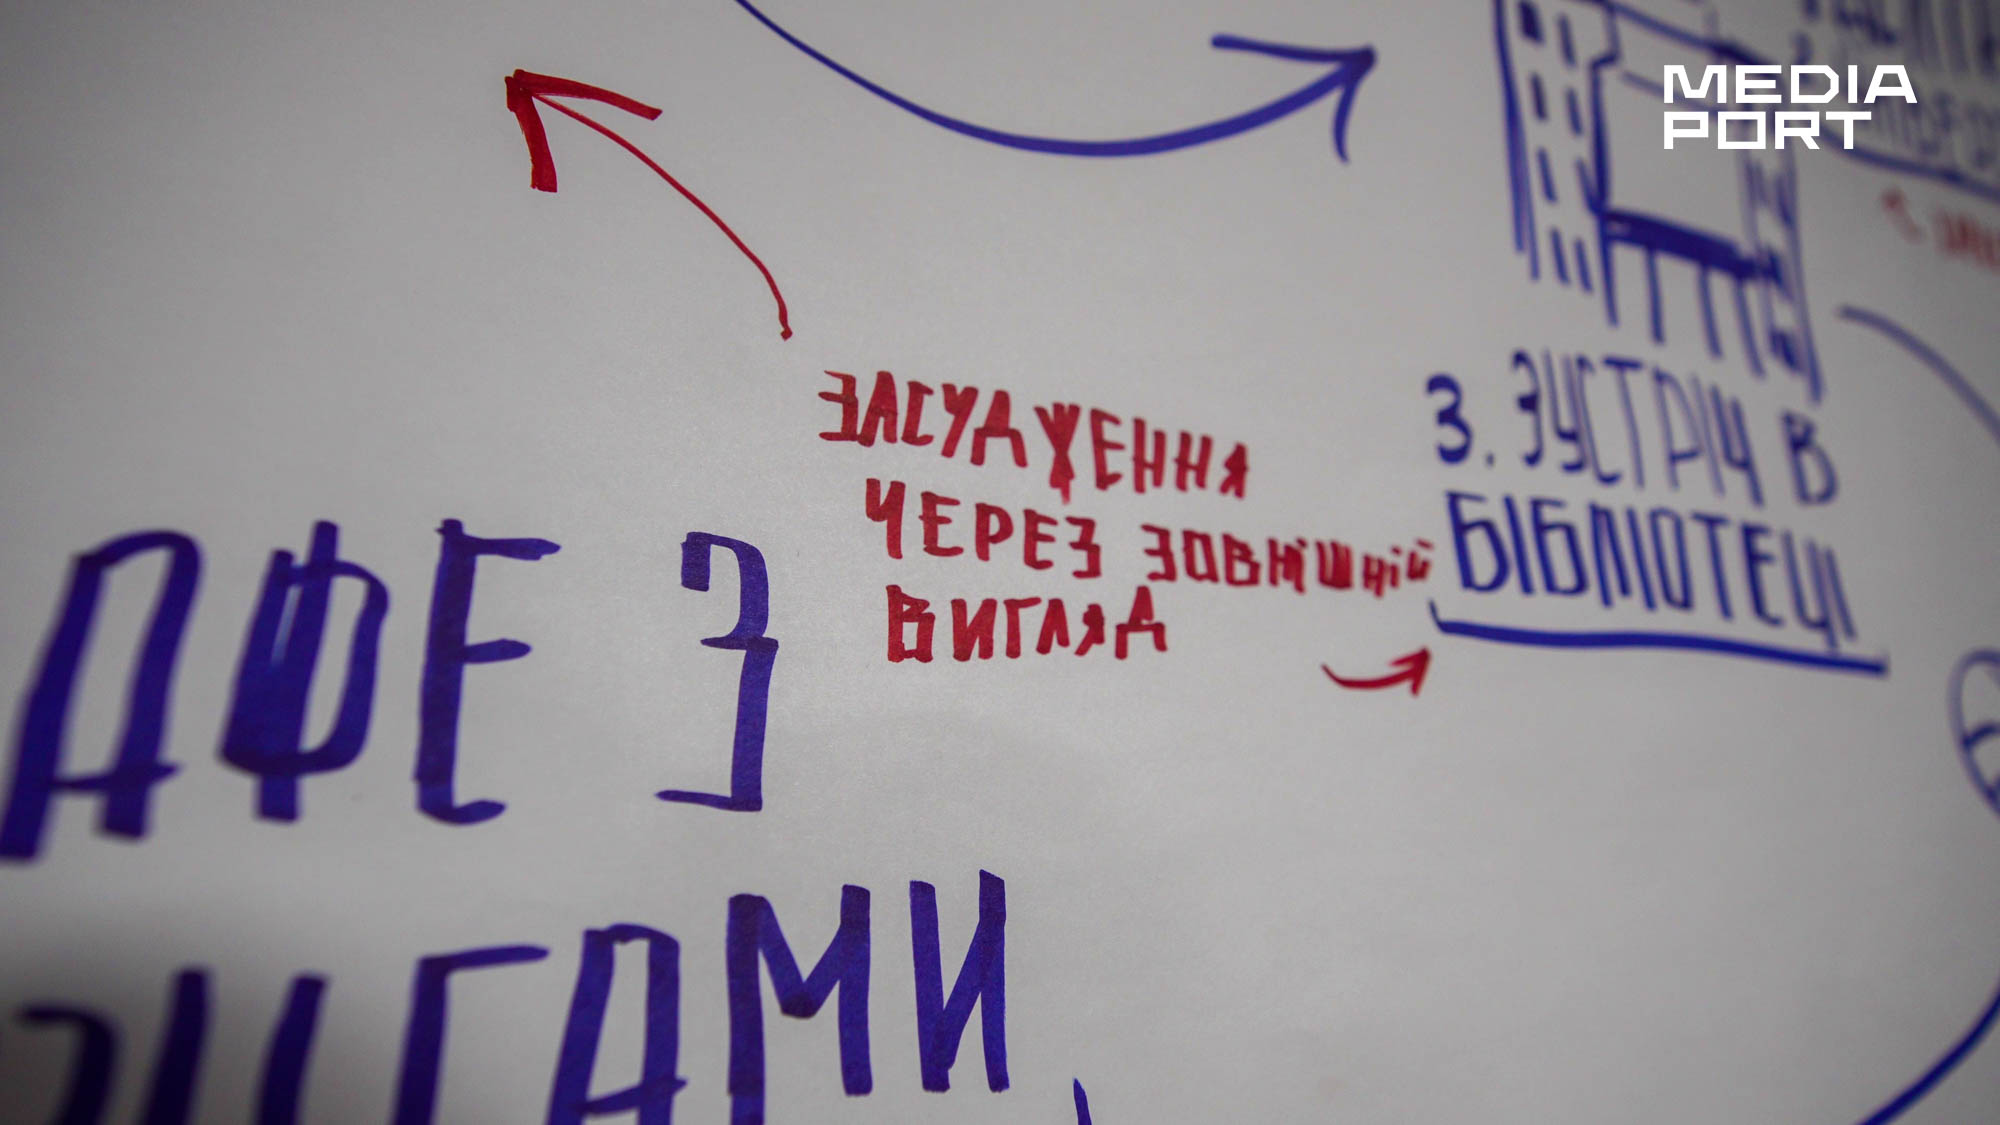 MEDIA
PORT
ЗАСУДЖЕННЯ
ЧЕРЕЗ ЗОВНІШНІЙ
ВИГЛЯД
3. ЗУСТРІЧ В
БІБЛІОТЕЦІ
АФЕ З